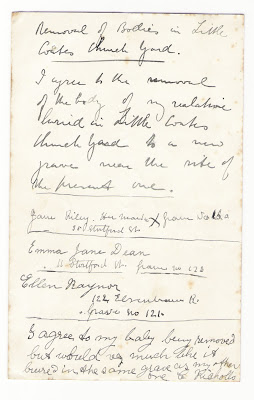 Removal of Bodies in Little
Coates Church Yard.
I agree to the removal
of the body of my relative
buried in Little Coates
Church Yard to a new
grave near the site of
the present one.
Jane Riley. Her mark X grave
Stortford St.
Emma Jane Dean
11 Stortford St. grave no 120
Ellen Raynor
grave no 121
I agree to my baby being removed
but would very much like it
buried in the same grave as my other
one E Nicholls